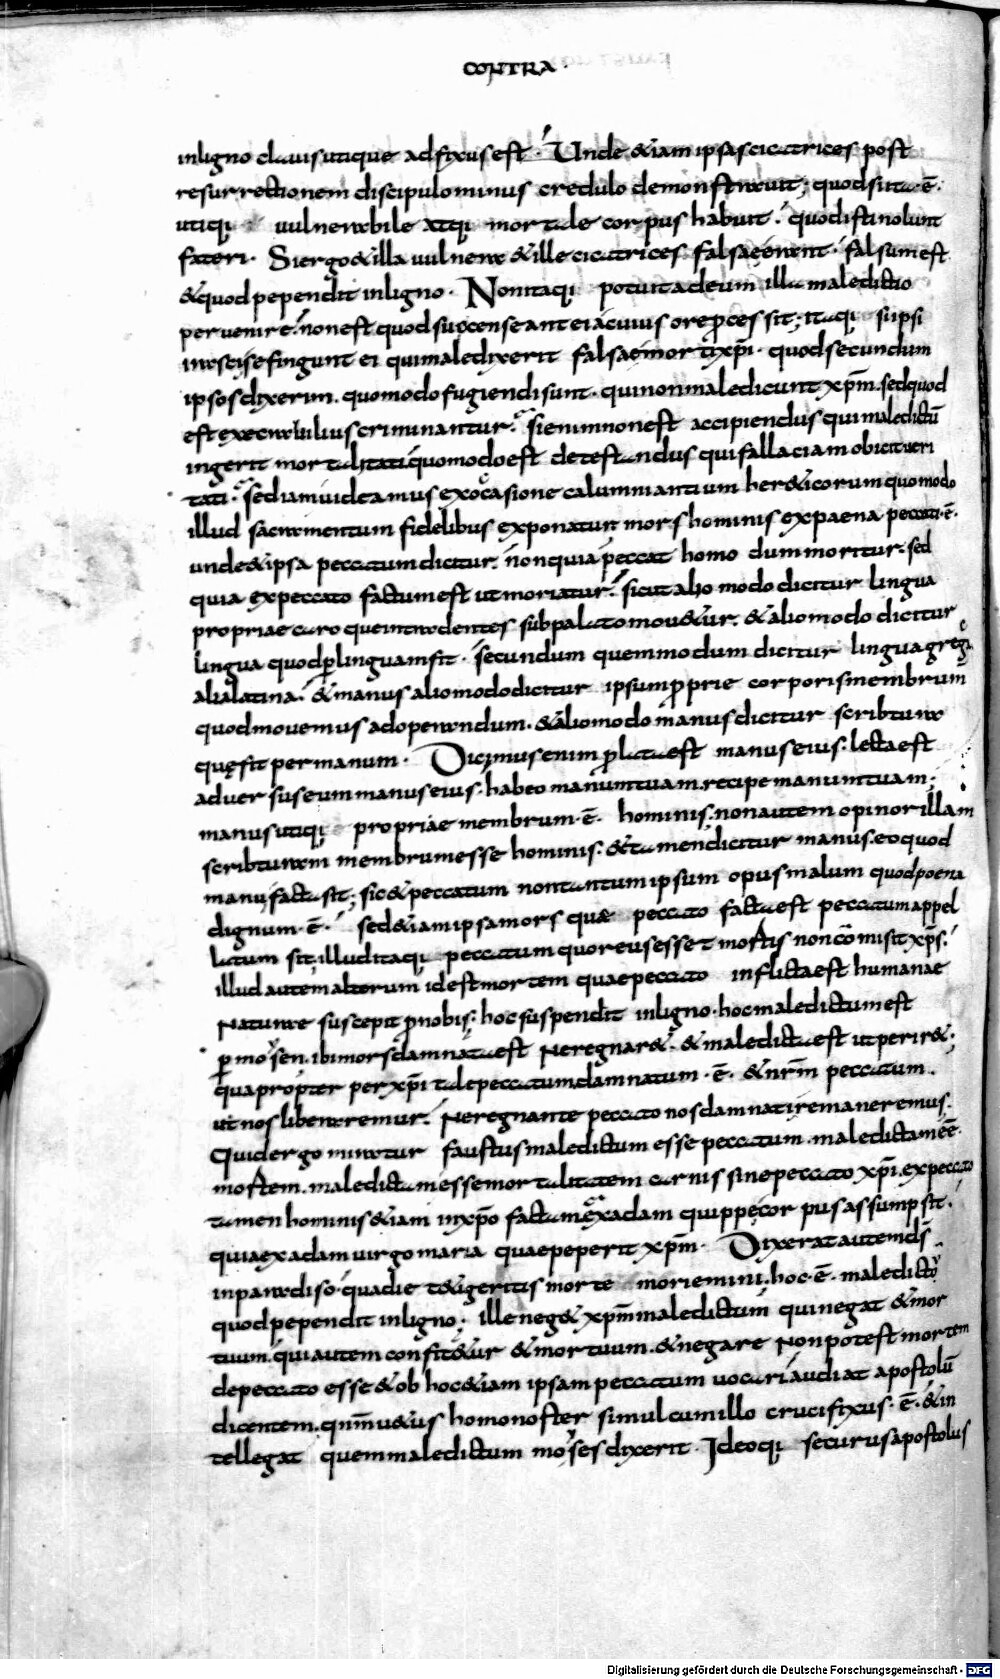 CONTRA
inligno clauis utique adfixus est. Unde &iam ipsas cicatrices post
resurrectionem discipulo minus credulo demonstrauit; quod si ita ē.
utiqi uulnerabile atqi mortale corpus habuit. quod isti nolunt
fateri. Si ergo & illa uulnera & ille cicatrices falsae erant. falsum est
& quod pependit inligno. Non itaqi potuit adeum illa maledictio
peruenire. non est quod suscenseant ei acuius ore p̄ces sit; itaqi si ipsi
irasci se fingunt ei qui maledixerit falsae morti xp̄i. quod secundum
ipsos dixerim. quomodo fugiendi sunt. qui non maledicunt xp̄m. sed quod
est execrabilius criminantur. si enim non est accipiendus qui maledictū
ingerit mortalitati quomodo est detestandus qui fallaciam obicit ueri
tati. sed iam uideamus exocasione calumniantium her&icorum quomodo
illud sacramentum fidelibus exponatur mors hominis expaena peccati ē.
unde & ipsa peccatum dicitur. non quia peccat homo dum moritur. sed
quia expeccato factum est ut moriatur. sicut alio modo dicitur lingua
propriae caro que intra dentes subpalato mou&ur. & alio modo dicitur
lingua quod p̄ linguam fit. secundum quem modum dicitur lingua greca
alia latina. & manus alio modo dicitur ipsum p̄prie corporis membrum
quod mouemus adoperandum. & alio modo manus dicitur scribtura
quę fit per manum. Dicimus enim p̄lata est manus eius. lecta est
aduersus eum manus eius. habeo manum tuam. recipe manum tuam.
manus utiqi propriae membrum ē hominis. non autem opinor illam
scribturam membrum esse hominis. & tamen dicitur manus. eo quod
manu facta sit; sic & peccatum non tantum ipsum opus malum quod poena
dignum ē. sed &iam ipsa mors quae peccato facta est peccatum appel
latum sit; illud itaqi peccatum quo reus esset mortis non cōmisit xp̄s.
illud autem alterum id est mortem quae peccato inflicta est humanae
naturae suscepit p̄nobis. hoc suspendit inligno. hoc maledictum est
p̄ moysen. ibi mors damnata est ne regnar&. & maledicta est ut perir&.
quapropter per xp̄i tale peccatum damnatum ē. & nr̄m peccatum.
ut nos liberaremur. ne regnante peccato nos damnati remaneremus.
Quid ergo miratur faustus maledictum esse peccatum. maledictam ēē
mortem. maledictam esse mortalitatem carnis sine peccato xp̄i. expeccato
tamen hominis &iam inxp̄o factam exadam quippe corpus assumpsit.
quia exadam uirgo maria quae peperit xp̄m. Dixerat autem ds̄
inparadiso. qua die tetigeritis morte moriemini. hoc ē maledictū
quod pependit inligno. ille neg& xp̄m maledictum qui negat & mor
tuum. qui autem confit&ur & mortuum. & negare non potest mortem
depeccato esse & ob hoc &iam ipsam peccatum uocari audiat apostolū
dicentem. qnm̄ u&us homo noster simul cum illo crucifixus ē. & in
tellegat quem maledictum moyses dixerit. Ideoqi securus apostolus
Digitalisierung gefördert durch die Deutsche Forschungsgemeinschaft - DFG